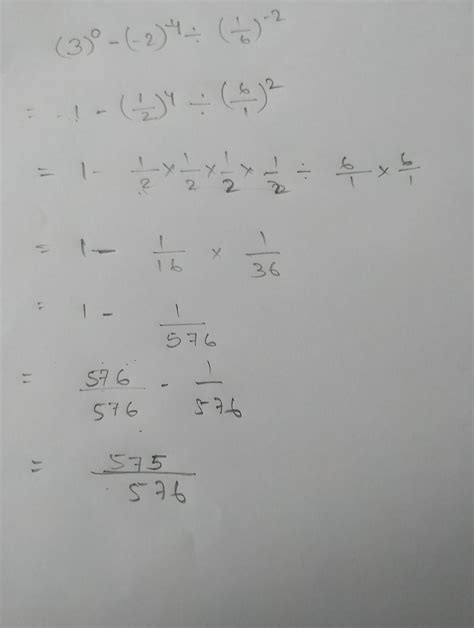 (3)⁰ - (-2)⁻⁴ ÷ (1/6)⁻²
= 1 - (1/2)⁴ ÷ (6/1)²
= 1 - 1/2 × 1/2 × 1/2 × 1/2 ÷ 6/1 × 6/1
= 1 - 1/16 × 1/36
= 1 - 1/576
= 576/576 - 1/576
= 575/576